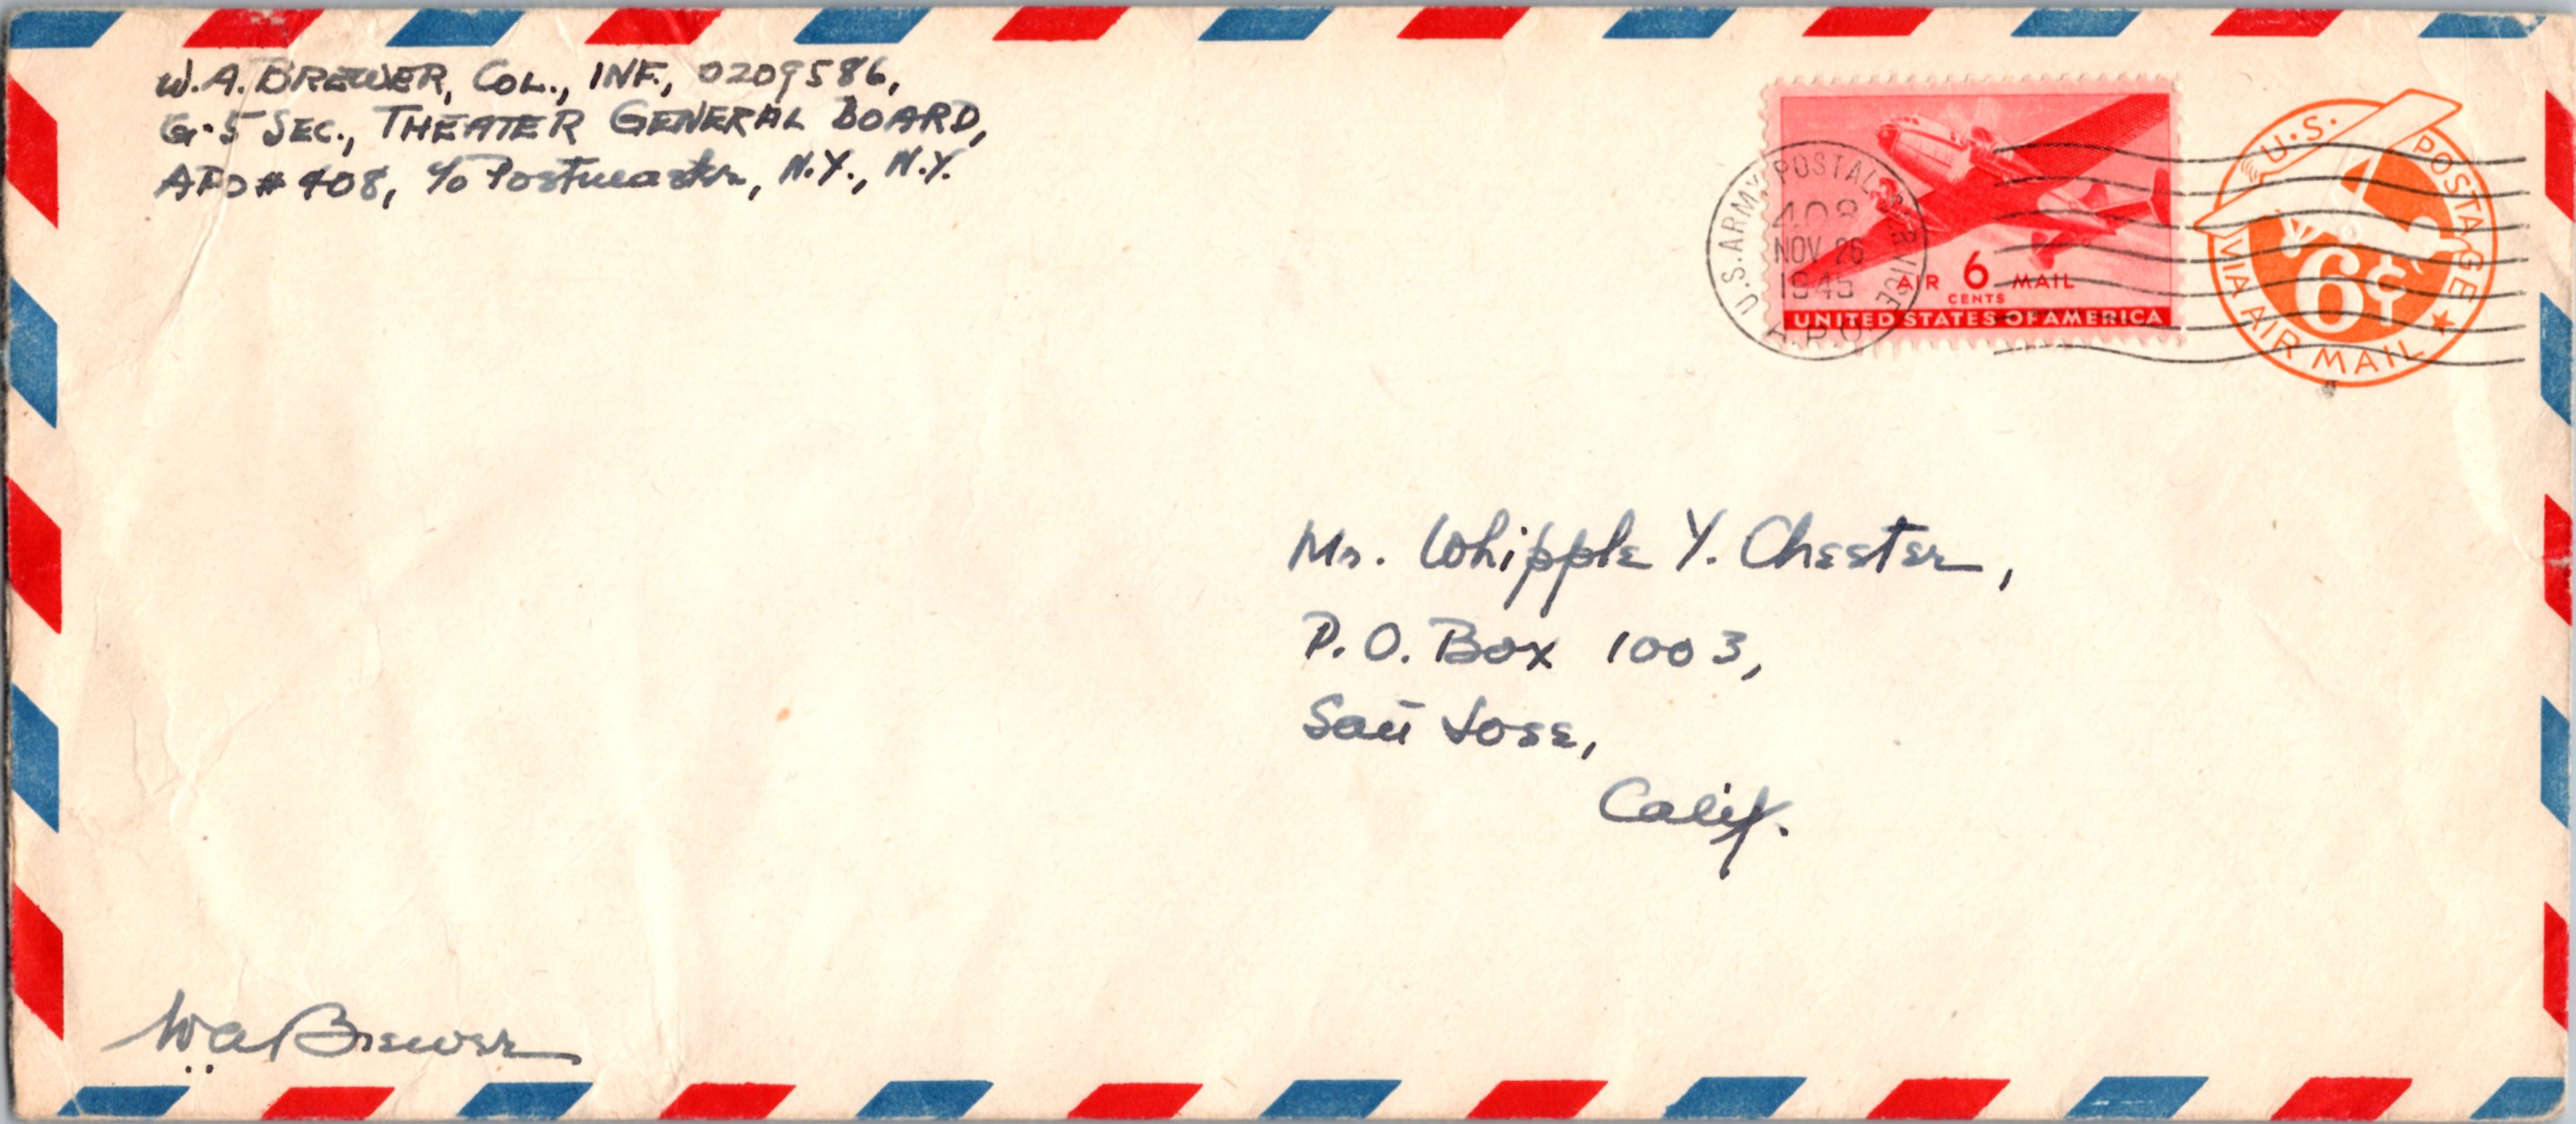 W. A. BREWER, COL., INF., 0209586,
G-5 SEC., THEATER GENERAL BOARD,
APO # 408, c/o Postmaster, N.Y., N.Y.
U.S. ARMY POSTAL SERVICE
408
NOV 26
1945
A.P.O.
AIR 6 MAIL
CENTS
UNITED STATES OF AMERICA
U.S. POSTAGE
6¢
VIA AIR MAIL
Mr. Whipple Y. Chester,
P. O. Box 1003,
San Jose,
Calif.
WA Brewer